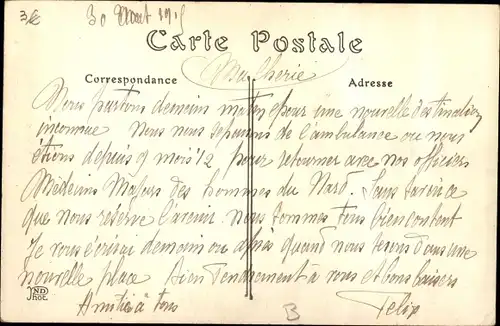 3€
30 Août 191
Carte Postale
Correspondance
Ma Chérie
Adresse
Nous partons demain matin pour une nouvelle destination
inconnue Nous nous séparons de l'ambulance ou nous
étions depuis 9 mois 1/2 pour retourner avec nos officiers
Médecins Majors des hommes du Nord. Sans savoir ce
que nous réserve l'avenir. Nous sommes tous bien content
Je vous écrirai demain ou après quand nous serons dans une
nouvelle place Bien tendrement à vous et bons baisers
Amitiés à tous
Felix
ND
Phot.
B